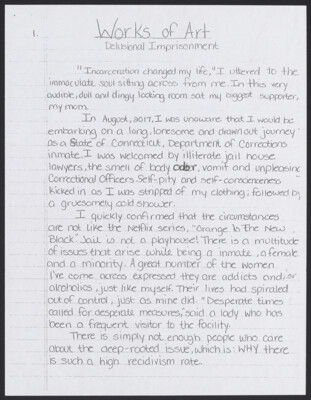 1.
Works of Art
Delusional Imprisonment
"Incarceration changed my life," I uttered to the
immaculate soul sitting across from me. In this very
audible, dull and dingy looking room sat my biggest supporter,
my mom.
In August, 2017, I was unaware that I would be
embarking on a long, lonesome and drawn out journey
as a State of Connecticut, Department of Corrections
inmate. I was welcomed by illiterate jail house
lawyers, the smell of body odor, vomit and unpleasing
Correctional Officers. Self-pity and self-consciousness
kicked in as I was stripped of my clothing; followed by
a gruesomely cold shower.
I quickly confirmed that the circumstances
are not like the Netflix series, "Orange Is The New
Black". Jail is not a playhouse! There is a multitude
of issues that arise while being a inmate, a female
and a minority. A great number of the women
I've come across expressed they are addicts and/or
alcoholics, just like myself. Their lives had spiraled
out of control, just as mine did. "Desperate times
called for desperate measures," said a lady who has
been a frequent visitor to the facility.
There is simply not enough people who care
about the deep-rooted issue, which is: WHY there
is such a high recidivism rate.